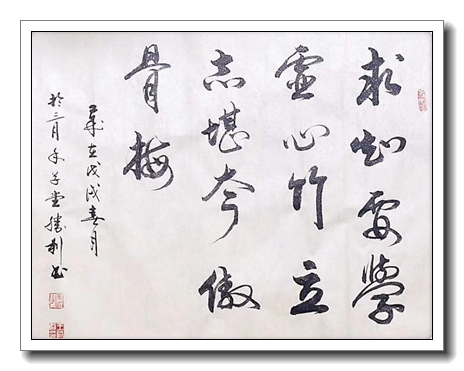 求知要學
虛心竹立
志堪夸傲
骨梅
歲在戊戌春月
於三月子堂勝利書